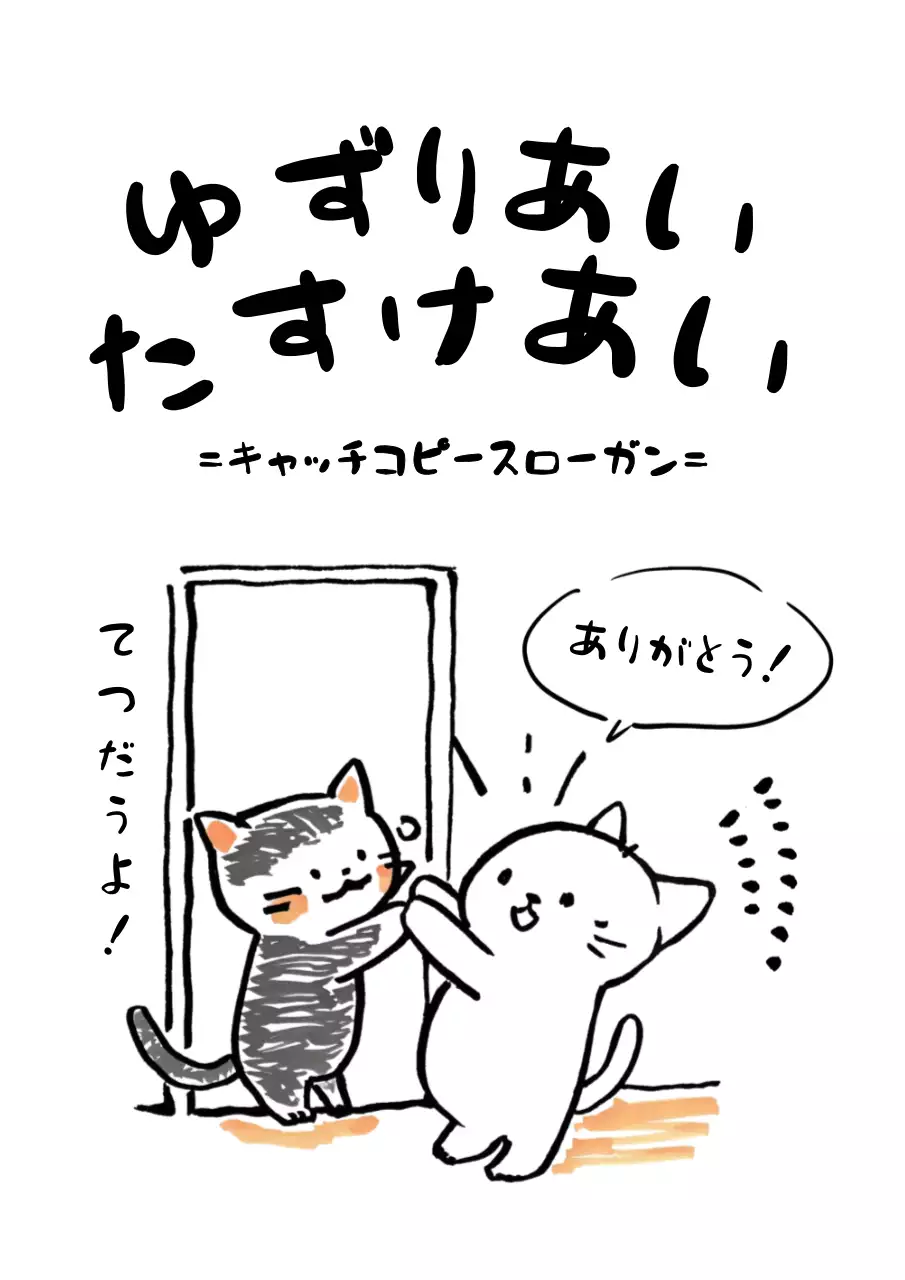 ゆずりあい
たすけあい
=キャッチコピースローガン=
てつだうよ!
ありがとう!